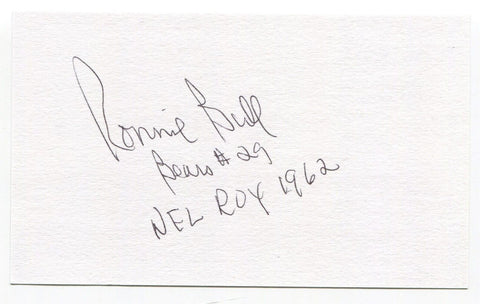 Ronnie Bull
Bears # 29
NFL ROY 1962